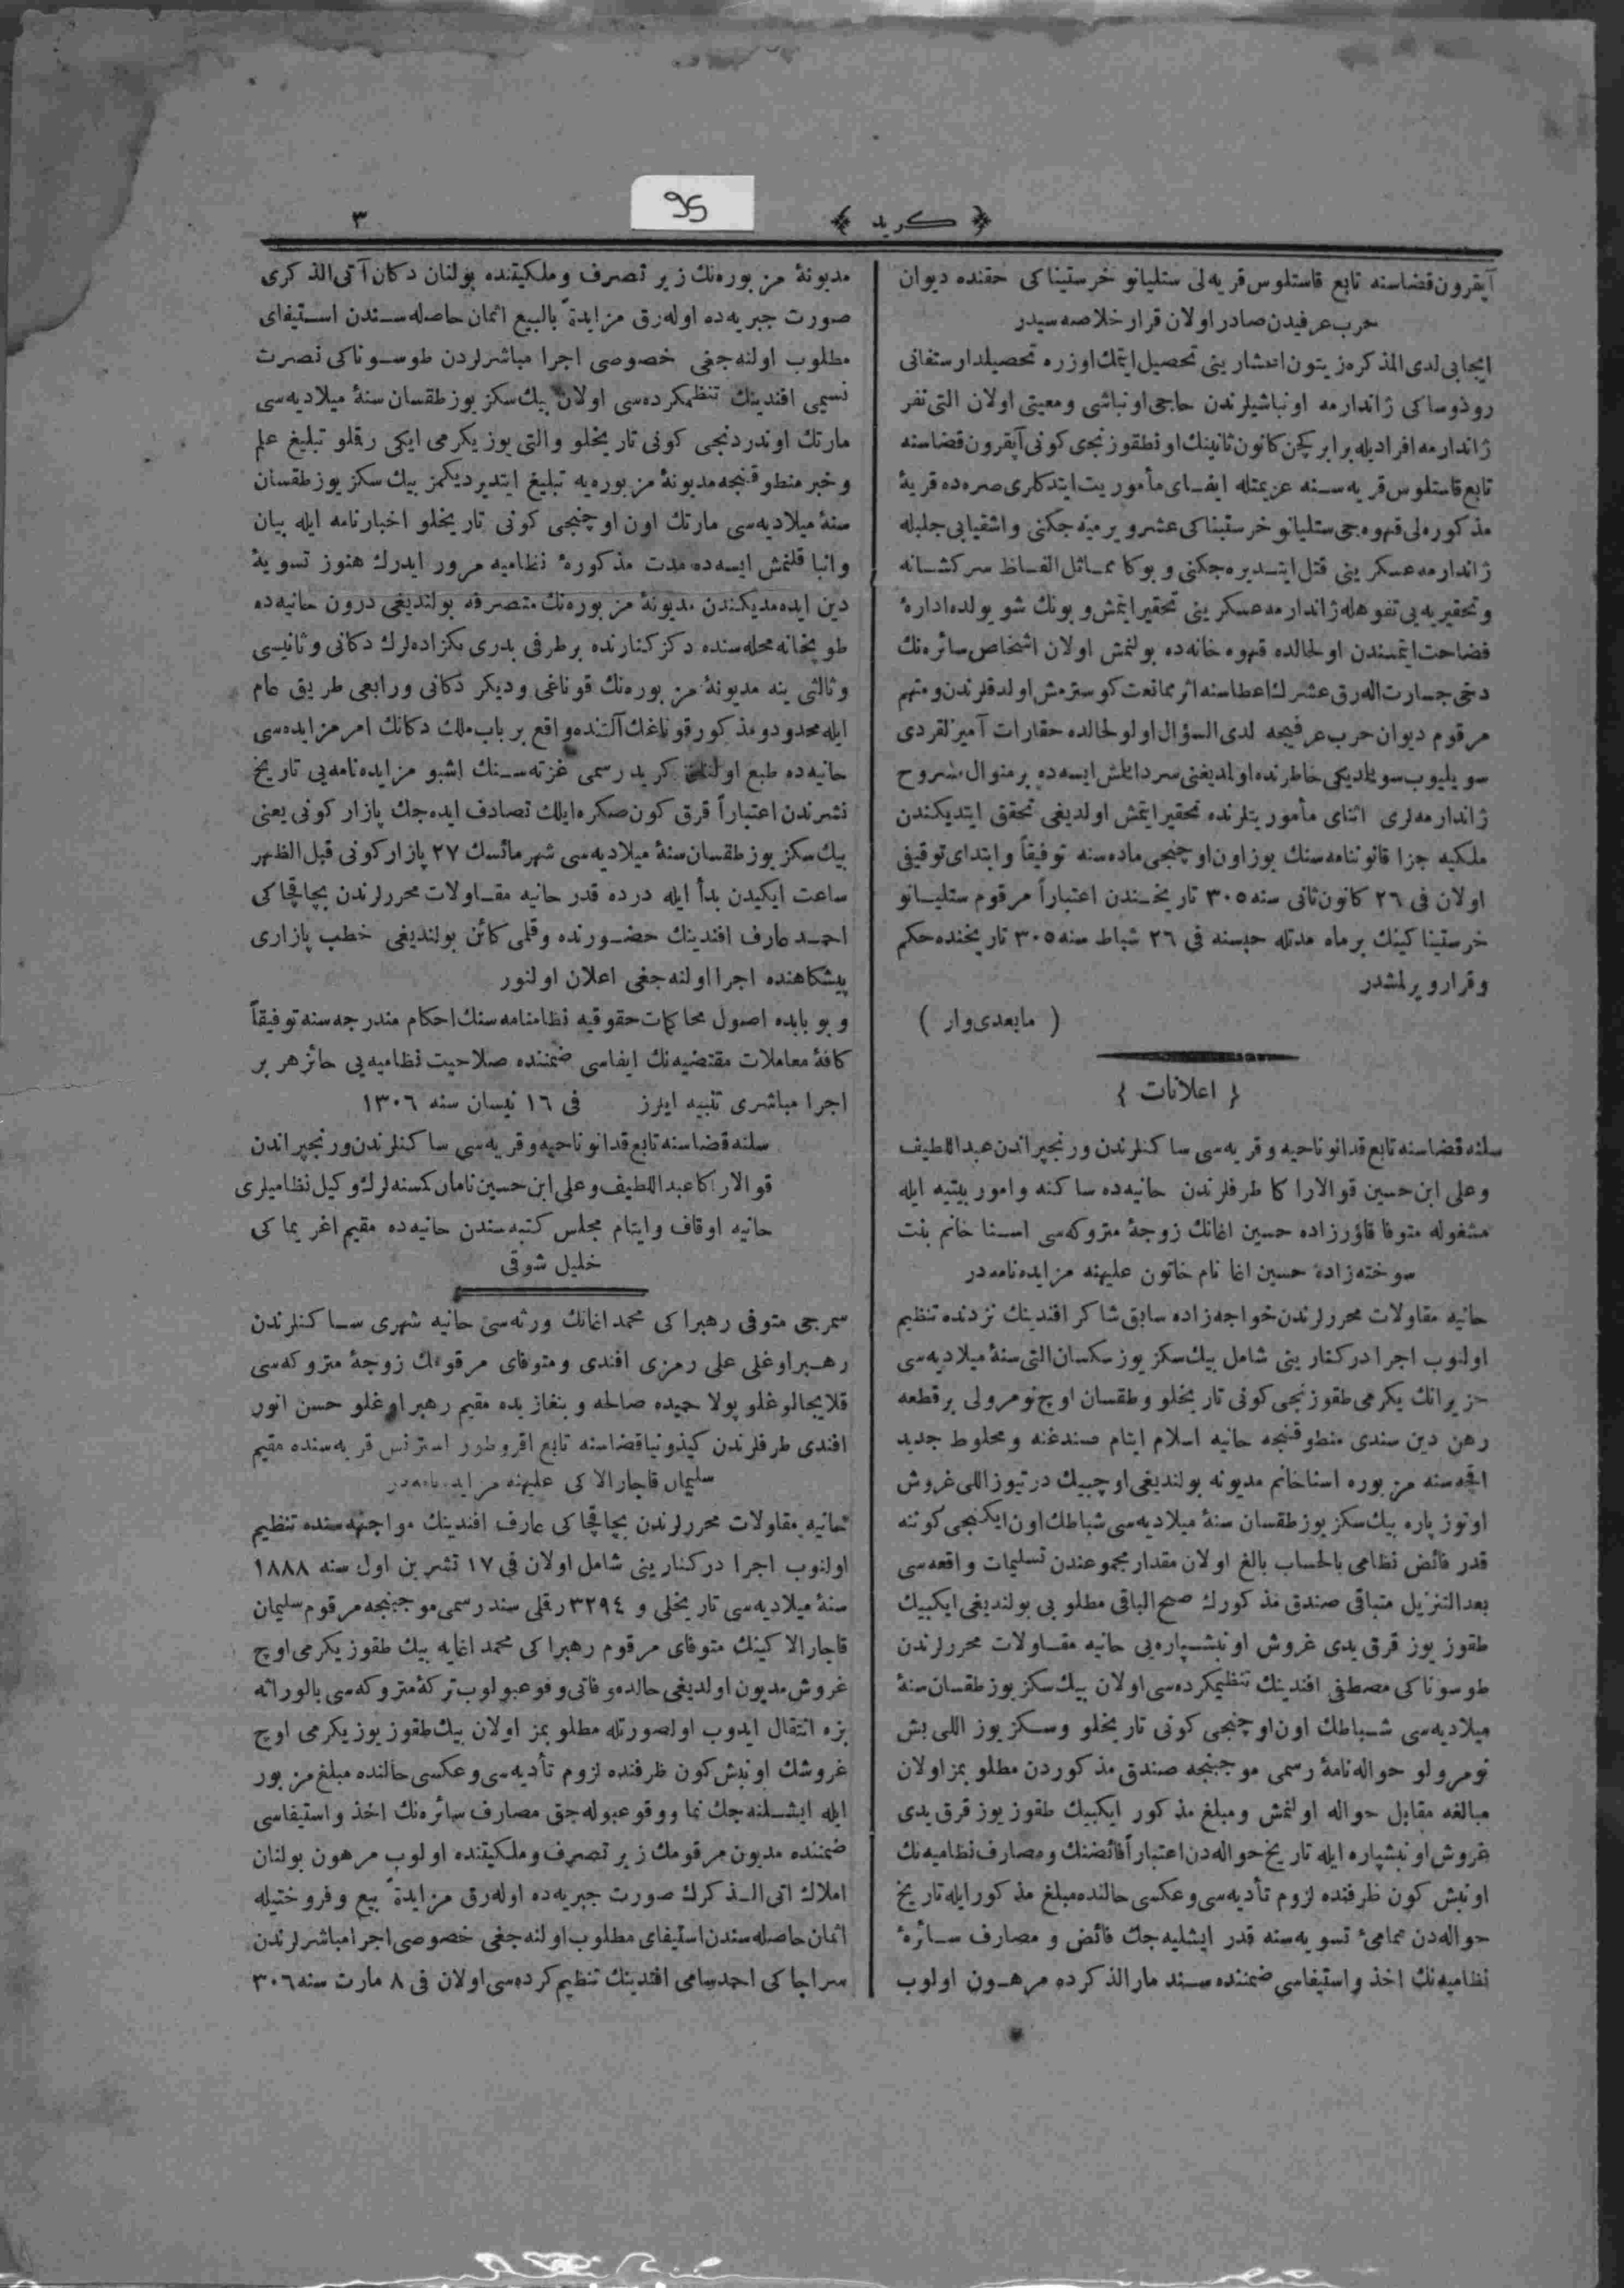 ﴿ كريد ﴾
٣
95
آپقرون قضاسنه تابع قاستلوس قريه‌لى ستليانو خرستيناكى حقنده ديوان
حرب عرفيدن صادر اولان قرار خلاصه سيدر
ايجابى لدى المذكره زيتون اعشارينى تحصيل ايتمك اوزره تحصيلدار ستفانى
رودوساكى ژاندارمه اونباشيلرندن حاجى اونباشى ومعيتى اولان التى نفر
ژاندارمه افراديله برابر كچن كانون ثانينك اون طقوزنجى كونى آپقرون قضاسنه
تابع قاستلوس قريه‌سنه عزيمتله ايفاى مأموريت ايتدكلرى صره‌ده قريۀ
مذكوره‌لى قهوه‌جى ستليانو خرستيناكى عشرويرميه‌جكنى واشقيايى جلبله
ژاندارمه عسكرينى قتل ايتديره‌جكنى وبوكا مماثل الفاظ سركشانه
وتحقيريه‌يى تفوهله ژاندارمه عسكرينى تحقير ايتمش وبونك شو يولده اداره‌ٔ
فضاحت ايتمسندن اولحالده قهوه‌خانه‌ده بولنمش اولان اشخاص سائره‌نك
دخى جسارت اله‌رق عشرك اعطاسنه اثر ممانعت كوسترمش اولدقلرندن ومتهم
مرقوم ديوان حرب عرفيجه لدى السؤال اولولحالده حقارات آميز لقردى
سويليوب سويلديكى خاطرنده اولمديغنى سرد ايلمش ايسه‌ده بر منوال مشروح
ژاندارمه‌لرى اثناى مأموريتلرنده تحقير ايتمش اولديغى تحقق ايتديكندن
ملكيه جزا قانوننامه‌سنك يوز اون اوچنجى ماده‌سنه توفيقاً وابتداى توقيفى
اولان فى ٢٦ كانون ثانى سنه ٣٠٥ تاريخندن اعتباراً مرقوم ستليانو
خرستيناكينك بر ماه مدتله حبسنه فى ٢٦ شباط سنه ٣٠٥ تاريخنده حكم
وقرار ويرلمشدر
( مابعدى وار )
{ اعلانات }
سلنه قضاسنه تابع قدانو ناحيه وقريه‌سى ساكنلرندن ورنجبراندن عبداللطيف
وعلى ابن حسين قوالاراكا طرفلرندن حانيه‌ده ساكنه وامور بيتيه ايله
مشغوله متوفا قاؤرزاده حسين اغانك زوجۀ متروكه‌سى اسنا خانم بنت
سوخته‌زاده حسين اغا نام خاتون عليهنه مزايده نامه‌در
حانيه مقاولات محررلرندن خواجه‌زاده سابق شاكر افندينك نزدنده تنظيم
اولنوب اجرا دركنارينى شامل بيك سكز يوز سكسان التى سنۀ ميلاديه‌سى
حزيرانك يكرمى طقوزنجى كونى تاريخلو وطقسان اوچ نومرولى بر قطعه
رهن دين سندى منطوقنجه حانيه اسلام ايتام صندغنه ومحلوط جديد
اقچه‌سنه مزبوره اسنا خانم مديونه بولنديغى اوچبيك درتيوز اللى غروش
اوتوز پاره بيك سكز يوز طقسان سنۀ ميلاديه‌سى شباطك اون ايكنجى كوننه
قدر فائض نظامى بالحساب بالغ اولان مقدار مجموعندن تسليمات واقعه‌سى
بعدالتنزيل متباقى صندق مذكورك صح الباقى مطلوبى بولنديغى ايكبيك
طقوز يوز قرق يدى غروش اونبشپاره‌يى حانيه مقاولات محررلرندن
طوسوناكى مصطفى افندينك تنظيمكرده‌سى اولان بيك سكز يوز طقسان سنۀ
ميلاديه‌سى شباطك اون اوچنجى كونى تاريخلو وسكز يوز اللى بش
نومرولو حواله‌نامۀ رسمى موجبنجه صندق مذكوردن مطلوبمز اولان
مبالغه مقابل حواله اولنمش ومبلغ مذكور ايكبيك طقوز يوز قرق يدى
غروش اونبشپاره ايله تاريخ حواله‌دن اعتباراً فائضنك ومصارف نظاميه‌نك
اونبش كون ظرفنده لزوم تأديه‌سى وعكسى حالنده مبلغ مذكور ايله تاريخ
حواله‌دن تمامئ تسويه‌سنه قدر ايشليه‌جك فائض ومصارف سائره‌ٔ
نظاميه‌نك اخذ واستيفاسى ضمننده سند مارالذكرده مرهون اولوب
مديونۀ مزبوره‌نك زير تصرف وملكيتنده بولنان دكان آتى الذكرى
صورت جبريه‌ده اوله‌رق مزايدةً بالبيع اثمان حاصله‌سندن استيفاى
مطلوب اولنه‌جغى خصوصى اجرا مباشرلردن طوسوناكى نصرت
نسيمى افندينك تنظيمكرده‌سى اولان بيك سكز يوز طقسان سنۀ ميلاديه‌سى
مارتك اوندردنجى كونى تاريخلو والتى يوز يكرمى ايكى رقملو تبليغ علم
وخبر منطوقنجه مديونۀ مزبوره‌يه تبليغ ايتديرديكمز بيك سكز يوز طقسان
سنۀ ميلاديه‌سى مارتك اون اوچنجى كونى تاريخلو اخبارنامه ايله بيان
وانبا قلنمش ايسه‌ده مدت مذكوره‌ٔ نظاميه مرور ايدرك هنوز تسويۀ
دين ايده‌مديكندن مديونۀ مزبوره‌نك متصرفه بولنديغى درون حانيه‌ده
طوپخانه محله‌سنده دكز كنارنده بر طرفى بدرى بكزاده‌لرك دكانى وثانيسى
وثالثى ينه مديونۀ مزبوره‌نك قوناغى وديكر دكانى ورابعى طريق عام
ايله محدود ومذكور قوناغك آلتنده واقع بر باب ملك دكانك امر مزايده‌سى
حانيه‌ده طبع اولنان كريد رسمى غزته‌سنك اشبو مزايده‌نامه‌يى تاريخ
نشرندن اعتباراً قرق كون صكره ايلك تصادف ايده‌جك پازار كونى يعنى
بيك سكز يوز طقسان سنۀ ميلاديه‌سى شهر مائسك ٢٧ پازار كونى قبل الظهر
ساعت ايكيدن بدأ ايله درده قدر حانيه مقاولات محررلرندن بچاقجاكى
احمد عارف افندينك حضورنده وقلمى كائن بولنديغى خطب پازارى
پيشكاهنده اجرا اولنه‌جغى اعلان اولنور
وبو بابده اصول محاكمات حقوقيه نظامنامه‌سنك احكام مندرجه‌سنه توفيقاً
كافۀ معاملات مقتضيه‌نك ايفاسى ضمننده صلاحيت نظاميه‌يى حائز هر بر
اجرا مباشرى تنبيه ايلرز فى ١٦ نيسان سنه ١٣٠٦
سلنه قضاسنه تابع قدانو ناحيه وقريه‌سى ساكنلرندن ورنجبراندن
قوالاراكا عبداللطيف وعلى ابن حسين نامان كمسنه‌لرك وكيل نظاميلرى
حانيه اوقاف وايتام مجلس كتبه‌سندن حانيه‌ده مقيم اغريماكى
خليل شوقى
سمرجى متوفى رهبراكى محمد اغانك ورثه‌سى حانيه شهرى ساكنلرندن
رهبراوغلى على رمزى افندى ومتوفاى مرقومك زوجۀ متروكه‌سى
قلايجالوغلو پولا حميده صالحه وبنغازيده مقيم رهبراوغلو حسن انور
افندى طرفلرندن كيذونيا قضاسنه تابع اقروطور استرنس قريه‌سنده مقيم
سليمان قاجارالاكى عليهنه مزايده نامه‌در
حانيه مقاولات محررلرندن بچاقجاكى عارف افندينك مواجهه‌سنده تنظيم
اولنوب اجرا دركنارينى شامل اولان فى ١٧ تشرين اول سنه ١٨٨٨
سنۀ ميلاديه‌سى تاريخلى و ٣٢٩٤ رقملى سند رسمى موجبنجه مرقوم سليمان
قاجارالاكينك متوفاى مرقوم رهبراكى محمد اغايه بيك طقوز يكرمى اوچ
غروش مديون اولديغى حالده وفاتى وقوعبولوب تركۀ متروكه‌سى بالوراثه
بزه انتقال ايدوب اولصورتله مطلوبمز اولان بيك طقوز يوز يكرمى اوچ
غروشك اونبش كون ظرفنده لزوم تأديه‌سى وعكسى حالنده مبلغ مزبور
ايله ايشلنه‌جك نما ووقوعبوله‌جق مصارف سائره‌نك اخذ واستيفاسى
ضمننده مديون مرقومك زير تصرف وملكيتنده اولوب مرهون بولنان
املاك اتى الذكرك صورت جبريه‌ده اوله‌رق مزايدةً بيع وفروختيله
اثمان حاصله‌سندن استيفاى مطلوب اولنه‌جغى خصوصى اجرا مباشرلرندن
سراجاكى احمد سامى افندينك تنظيم كرده‌سى اولان فى ٨ مارت سنه ٣٠٦